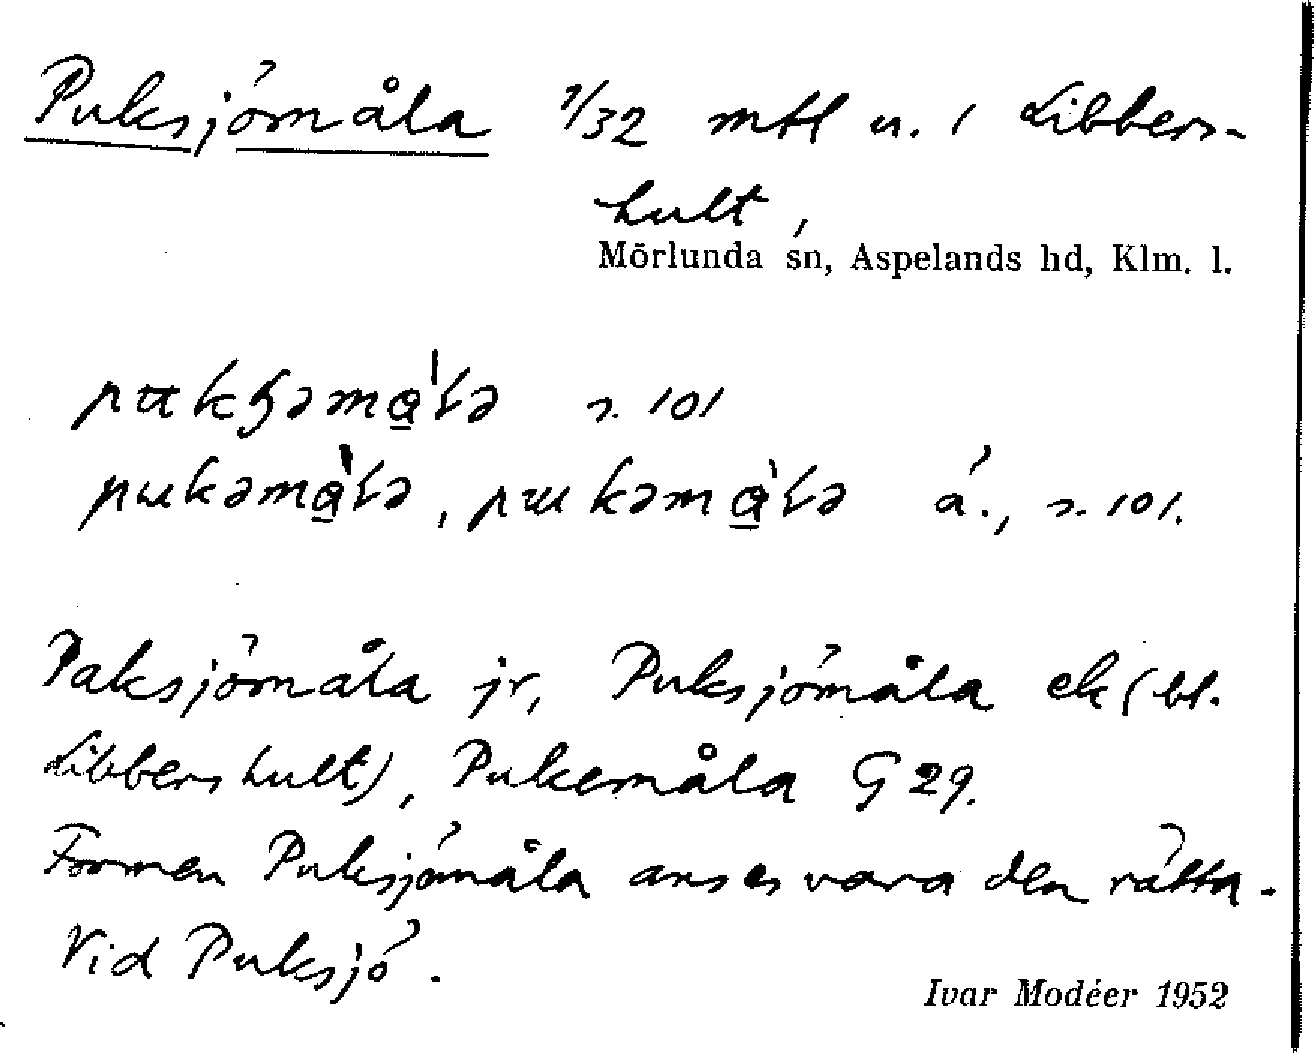 Puksjömåla 1/32 mtl u. i Libbers-
hult,
Mörlunda sn, Aspelands hd, Klm. l.
s. 101
ä., s. 101.
Paksjömåla jr, Puksjömåla ek (bl.
Libbershult), Pukemåla G 29.
Formen Puksjömåla anses vara den rätta.
Vid Puksjö.
Ivar Modéer 1952